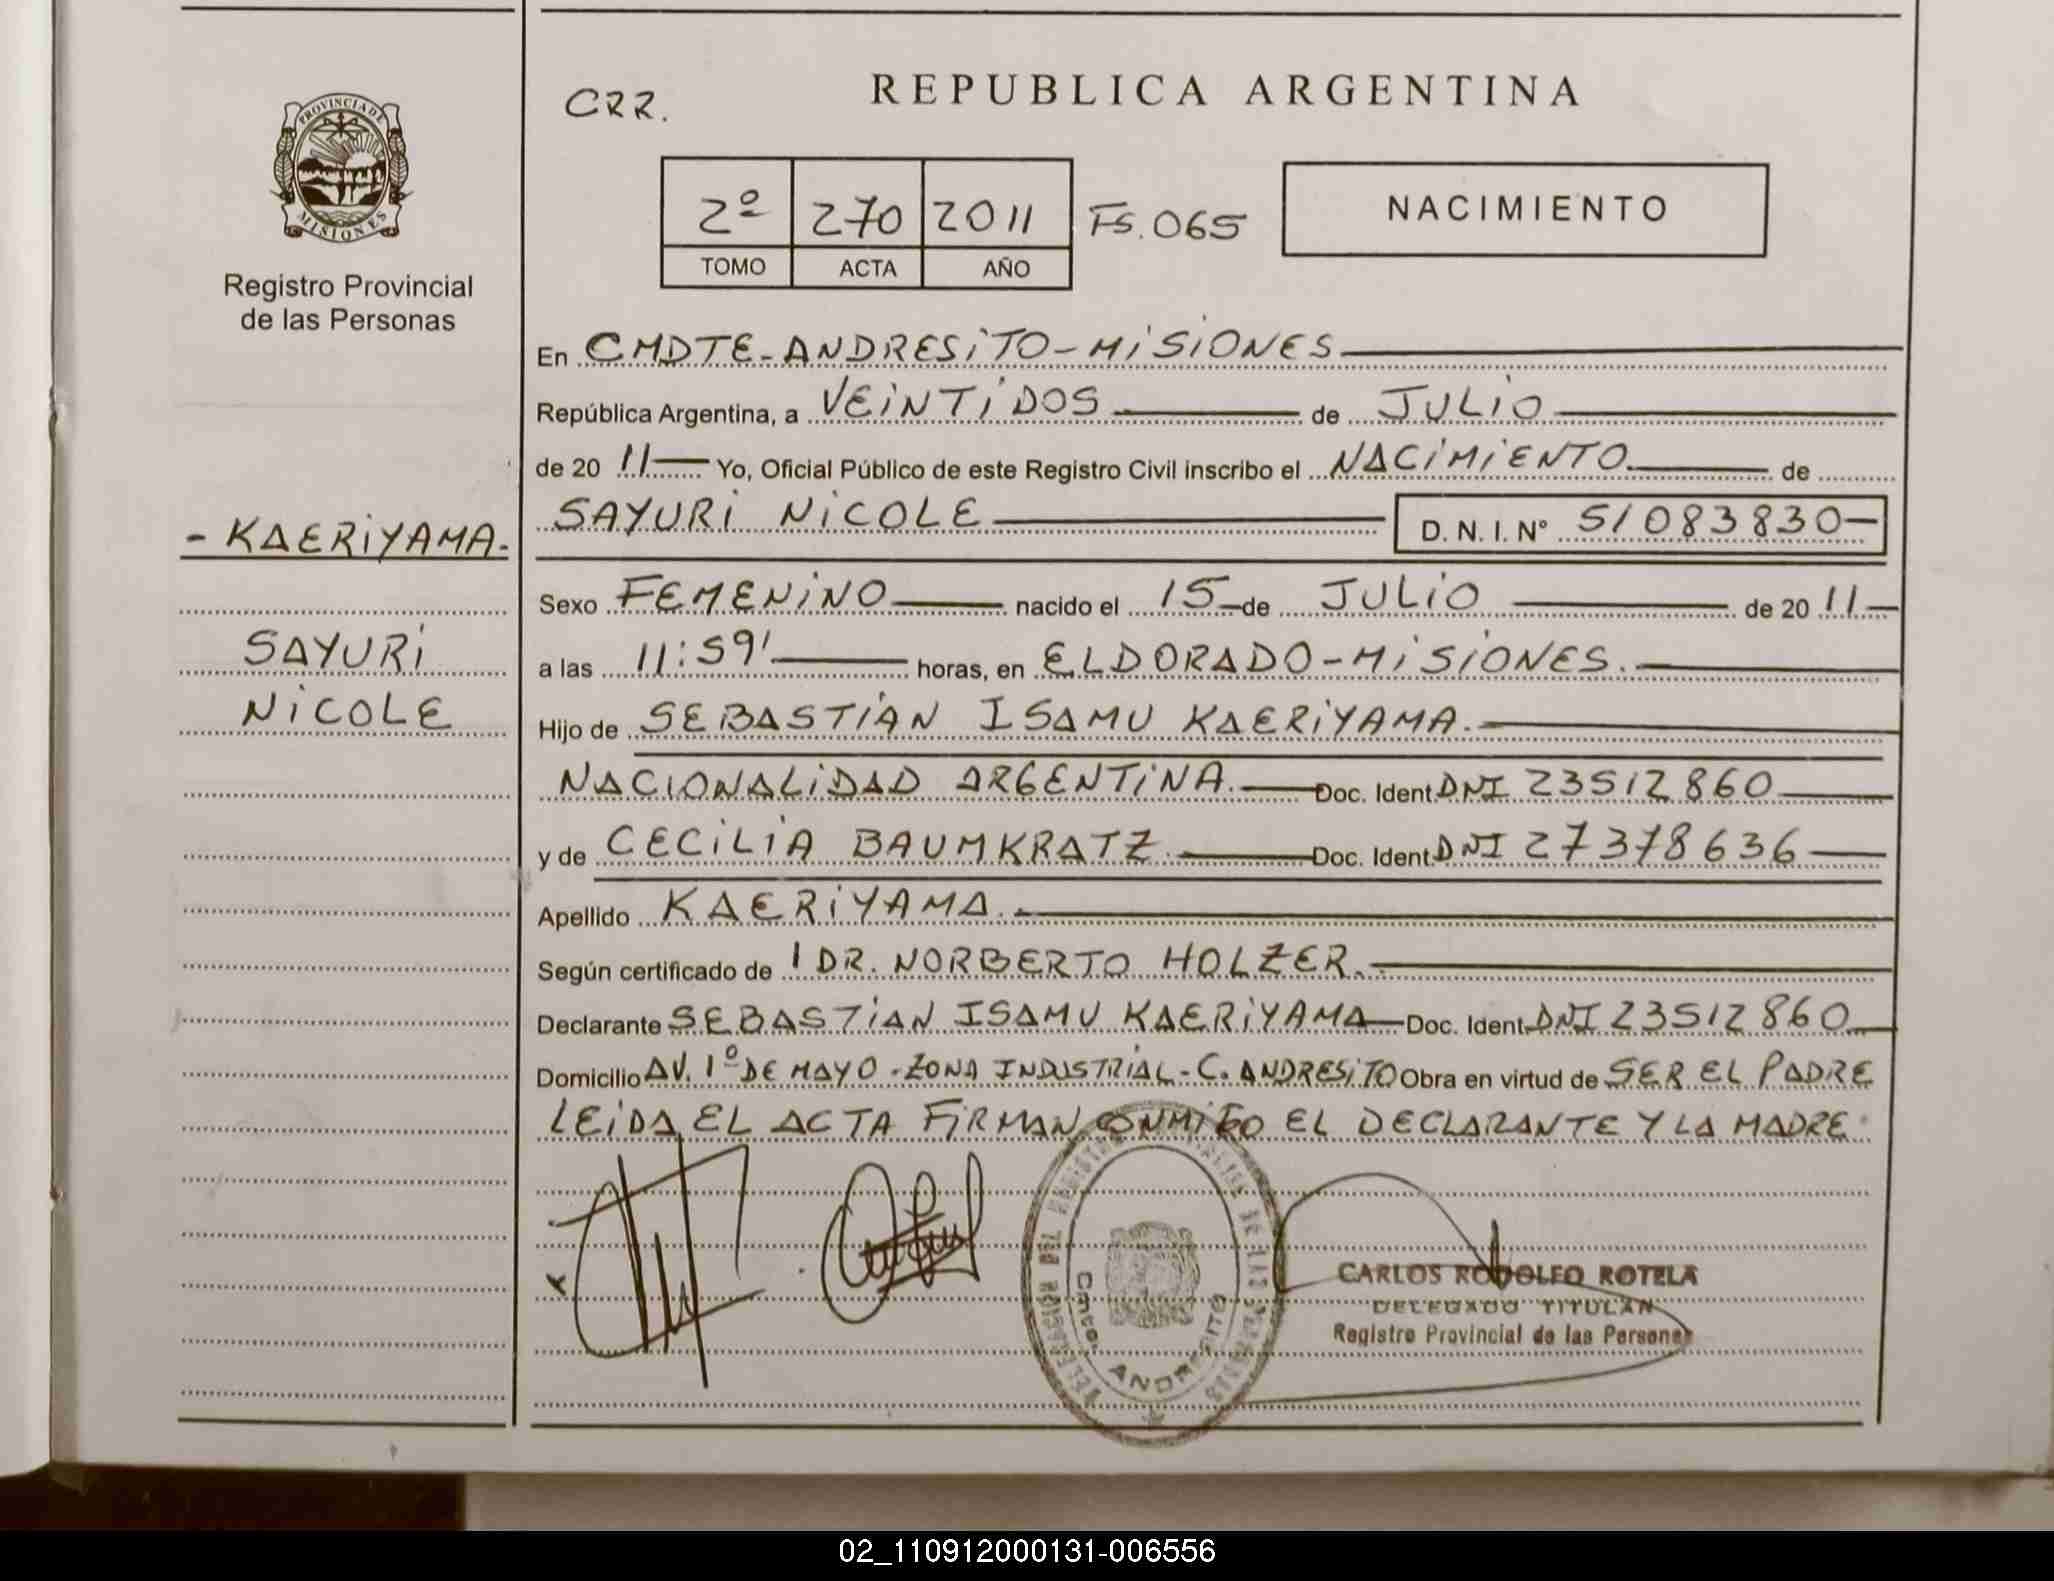 PROVINCIA DE
MISIONES
Registro Provincial
de las Personas
- KAERiYAMA.-
SAYURi
NiCOLE
CRR.
REPUBLICA ARGENTINA
2º 270 2011 FS. 065
TOMO ACTA AÑO
NACIMIENTO
En CMDTE-ANDRESiTO-MiSiONES
República Argentina, a VEiNTiDOS de JULiO
de 20 11 Yo, Oficial Público de este Registro Civil inscribo el NACiMiENTO de
SAYURi NiCOLE D. N. I. Nº 51083830-
Sexo FEMENiNO nacido el 15 de JULiO de 20 11
a las 11:59' horas, en ELDORADO-MiSiONES.
Hijo de SEBASTiAN ISAMU KAERiYAMA.
NACiONALiDAD ARGENTiNA. Doc. Ident. DNI 23512860
y de CECiLiA BAUMKRATZ. Doc. Ident. DNI 27378636
Apellido KAERiYAMA.
Según certificado de 1 DR. NORBERTO HOLZER.
Declarante SEBASTiAN ISAMU KAERiYAMA Doc. Ident. DNI 23512860
Domicilio AV. 1º DE MAYO - ZONA INDUSTRiAL - C. ANDRESiTO Obra en virtud de SER EL PADRE
LEiDA EL ACTA FiRMAN CONMiGO EL DECLARANTE Y LA MADRE.
Cmte. ANDRESITO
CARLOS RODOLFO ROTELA
DELEGADO TITULAR
Registro Provincial de las Personas
02_110912000131-006556